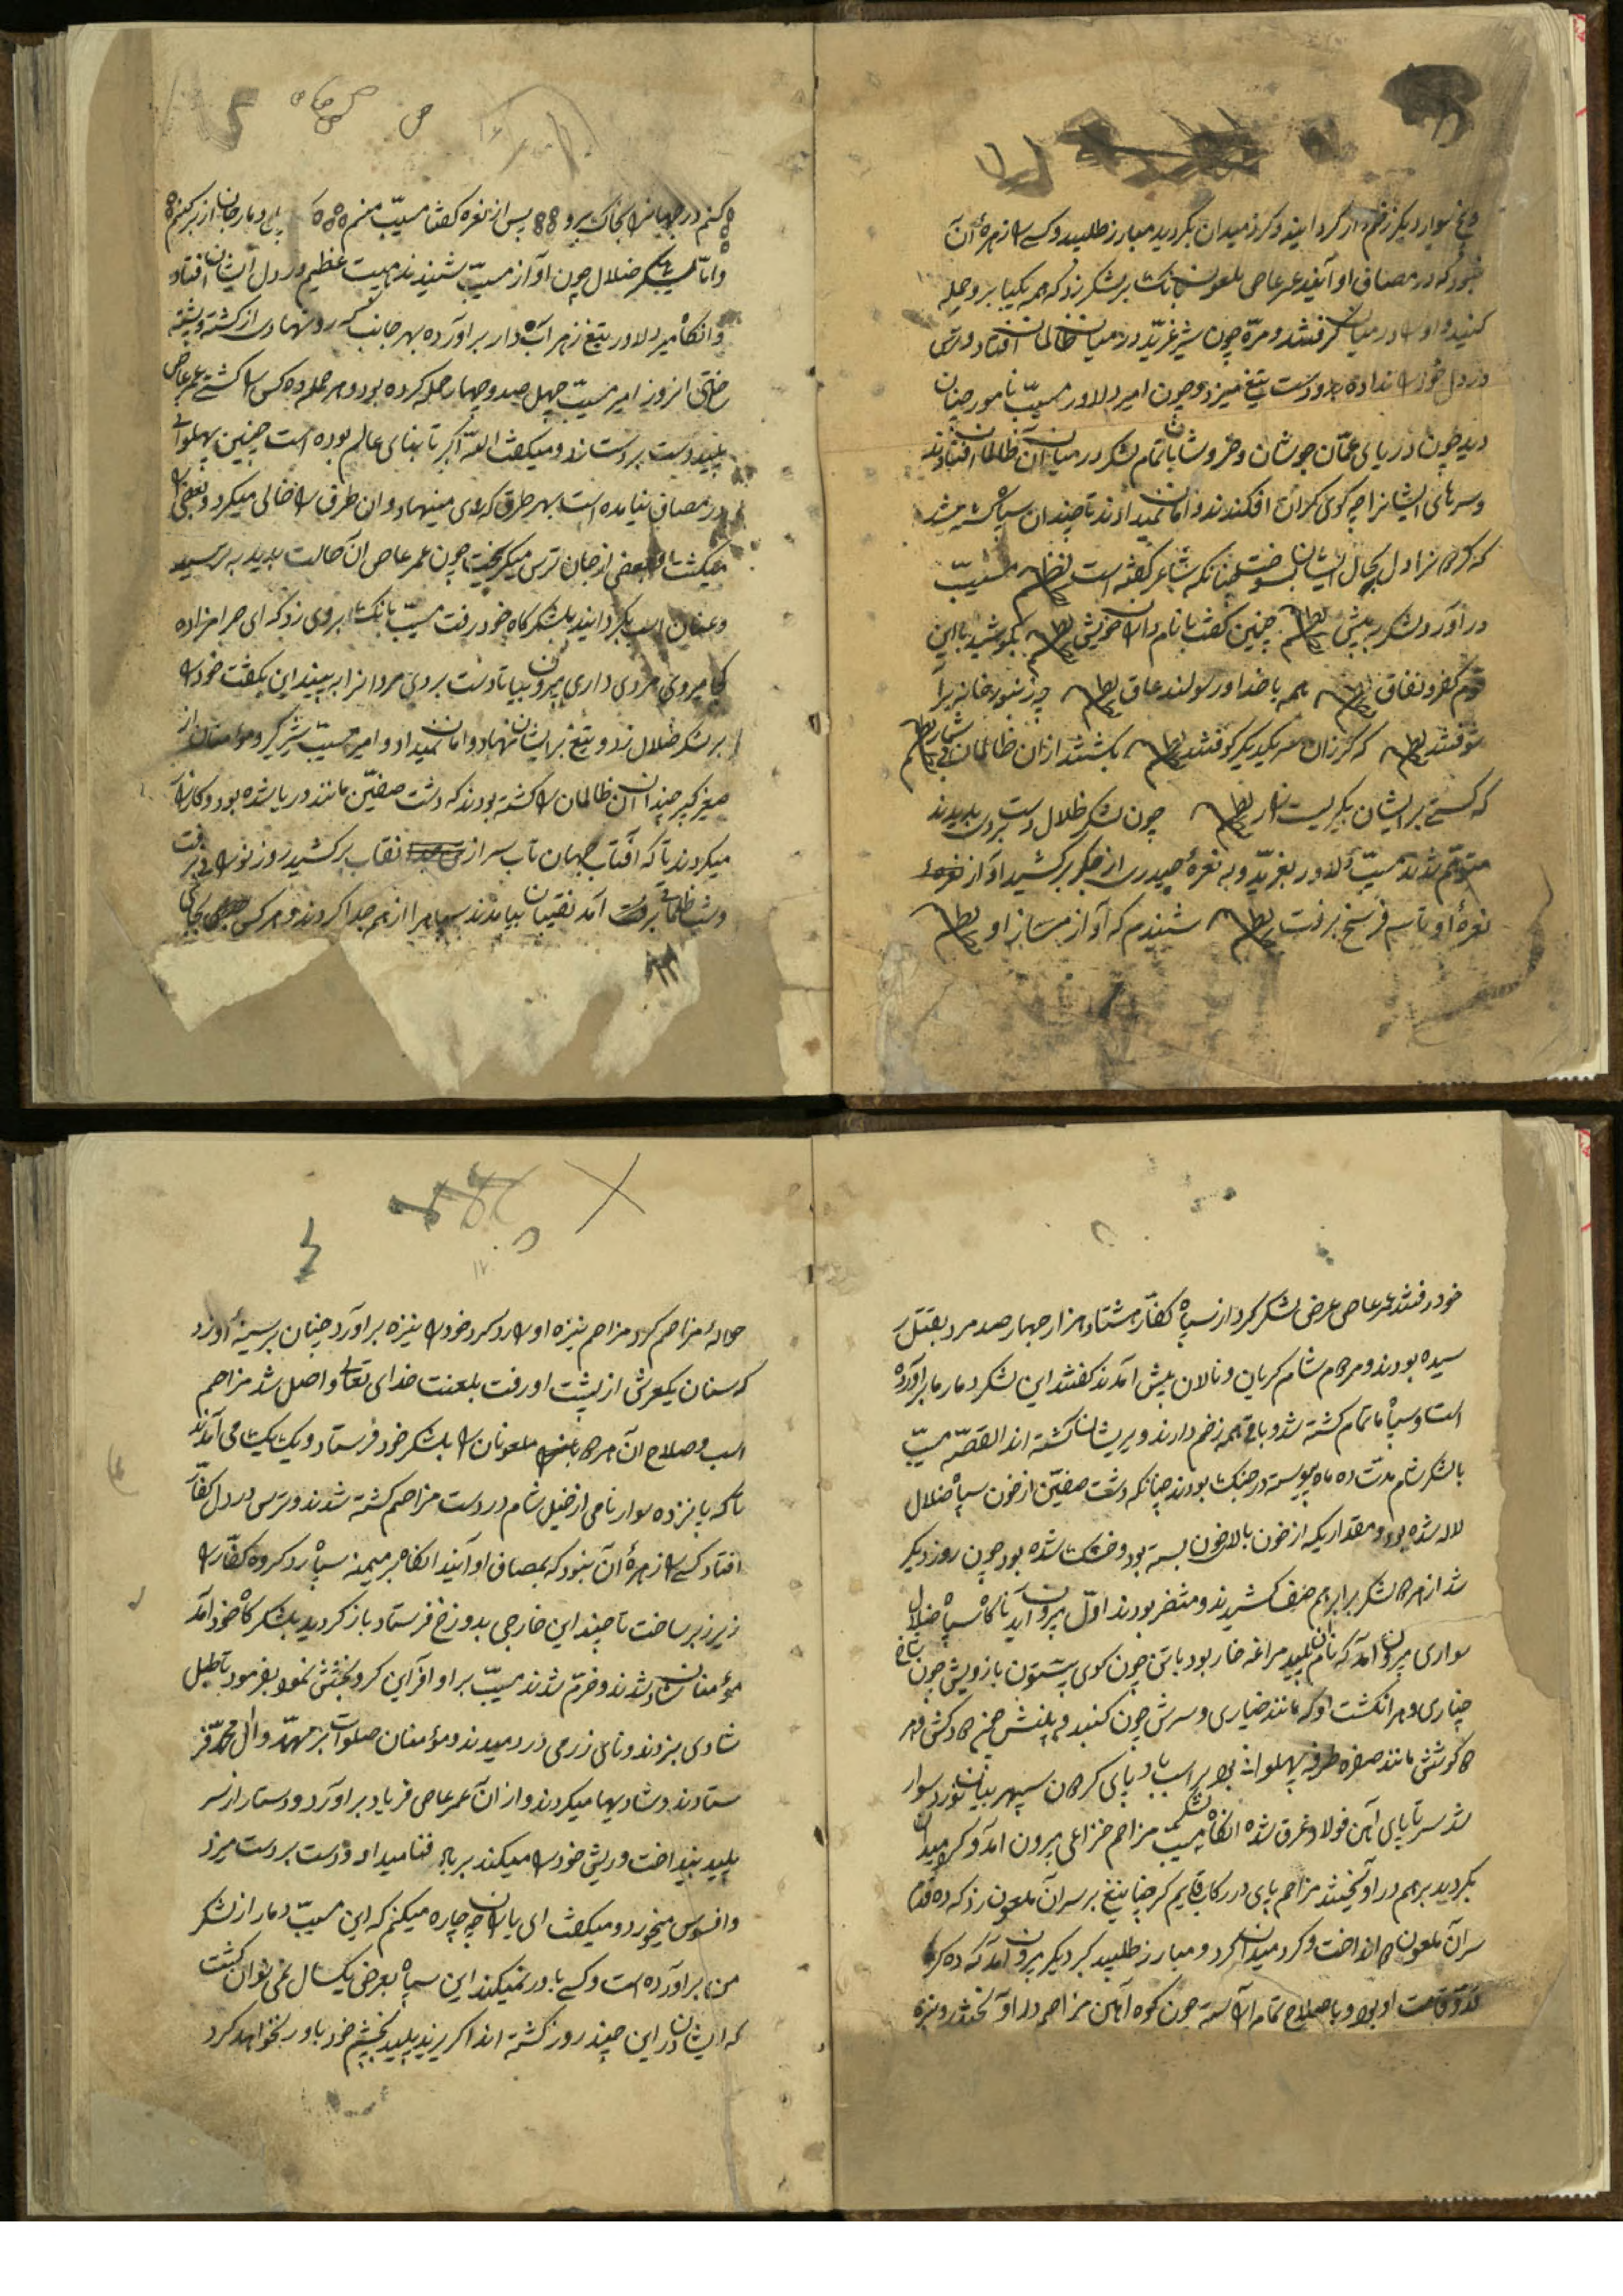 پنج سوار دیگر زخم دار گردانید و گرد میدان بگردید مبارز طلبید و کسی را زهرهٔ آن
نبود که در مصاف او آیند عمر عاص ملعون بانک بر لشکر زد که همه بیکبار برو حمله
کنید و او را در میان گرفتند و مره چون شیر غرید در میان ظالمان افتاد و ترس
در دل خود را نداده بدو دست تیغ میزد و چون امیر دلاور مسیّب نامور چنان
دید چون دریای عمّان جوشان و خروشان با تمام لشکر در میان آن ظالمان افتادند
و سرهای ایشانرا چو کوی کران افکندند و امان نمیدادند تا چندان سپاه کشته شد
که کرکانرا دل بحال ایشان بسوخت چنانکه شاعر کفته است نظم مسیّب
در آورد لشکر به پیش نظم چنین کفت با نامداران خویش نظم بکوشید با این
قوم کفر و نفاق نظم همه با خدا و رسولند عاق نظم چو زنبور خانه برآ
شوفتند نظم که کرزان سر یکدیکر کوفتند نظم بکشتند ازان ظالمان بی شمار نظم
که کستی بر ایشان بکریست زار نظم چون لشکر ظلال دست برد بدیدند
متوهّم شدند مسیّب دلاور بغرّید و به نعرهٔ حیدری از جکر برکشید آواز نعره
نعرهٔ او تا سه فرسخ برفت نظم شنیدم که آواز مساز او نظم
کنم در جهانرا بخاک برو پس از نعره کفتا مسیّب منم دمار جان از بر کنم
و امّا لشکر ضلال چون آواز مسیّب شنیدند هیبت عظیم در دل ایشان افتاد
و آنکاه میر دلاور تیغ زهر آب دار برآورده بهر جانب که رو نهادی از کشته پشته
ساختی انروز امیر مسیّب چهل صد و چهار حمله کرده بود و هر حمله ده کس را کشتی عمر عاص
پلید دست بر دست زد و میکفت اللّه اکبر تا بنای عالم بوده است چنین پهلوانی
در مصاف نیامده است بهر طرق که روی مینهاد و آن طرف را خالی میکرد و بعضی را
میکشت و بعضی از جان ترس میکریخت چون عمر عاص آن حالت بدید بترسید
و عنان اسب بکردانید بلشکرکاه خود رفت مسیّب بانک بروی زد که ای حرامزاده
کجا میروی مردی داری بیرون بیا تا دست بردی مردانرا ببیند این بکفت خود را
بر لشکر ضلال زد و تیغ بر ایشان نهاد و امان نمیداد و امیر مسیّب شیر کیر و مؤمنان از
صغیر کبیر چندان آن ظالمان را کشته بودند که دشت صفّین مانند دریا شده بود و کارزار
میکردند تا که آفتاب جهان تاب سر از نقاب برکشید روز نورانی برفت
و شب ظلمانی برفت آمد نقیبان بیامدند سپاهرا از هم جدا کردند و هر کس بجای
خود رفتند عمر عاص عرض لشکر کرد از سپاه کفّار هشتاد هزار چهار صد مرد بقتل ر
سیده بودند و مردم شام کریان و نالان پیش آمدند کفتند این لشکر دمار ما برآورده
است و سپاه ما تمام کشته شد و باقی همه زخم دارند و پریشان کشته اند القصّه مسیّب
با لشکر شام مدّت ده ماه پیوسته در جنک بودند چنانکه دشت صفّین از خون سپاه ضلال
لاله شده بود و مقداریکه از خون بالای خون بسته بود و خشک شده بود چون روز دیکر
شد از هر دو لشکر برابر هم صف کشیدند و منتظر بودند اوّل بیرون آید ناکاه سپاه ضلال
سواری بیرون آمد که نام پلید مراغه خار بود با تن چون کوی پشتون بازویش چون شاخ
چناری و هر انکشت او مانند خیاری و سرش چون کنبد و
کوشش مانند پهلوانی بود بر اسب باد پای کران سپهر بیابان نورد سوار
شد سر تا پای آهن فولاد غرق شده انکاه از لشکر مسیّب مزاحم خزاعی بیرون آمد و کرد میدان
بکردید بر هم در آویختند مزاحم پای در رکاب قایم کرد چنان تیغ بر سر آن ملعون زد که ده قدم
سر آن ملعون را انداخت و کرد میدان کرد و مبارز طلبید کبر دیکر بیرون آمد که ده کز
قدّ و قامت او بود و با صلاح تمام آراسته چون کوه آهن مزاحم در آویختند و نیزه
حوالهٔ مزاحم کرد مزاحم نیزه او را رد کرد خود را نیزه برآورد چنان بر سینهٔ او زد
که سنان یکعرش از پشت او رفت بلعنت خدای تعالی واصل شد مزاحم
اسب و صلاح آن هر دو ملعونان را بلشکر خود فرستاد و یک یک می آمدند
تا که پانزده سوار نامی از خیل شام در دست مزاحم کشته شدند و ترس در دل کفّار
افتاد کسی را زهرهٔ آن نبود که بمصاف او آیند انکاه بر میمنه سپاه زد کروه کفّار را
زیر زبر ساخت تا چند این خارجی بدوزخ فرستاد باز کردید بلشکرکاه خود آمد
مؤمنان شاد شدند و خرّم شدند مسیّب بر او آفرین کرد و بخشش نمود بفرمود تا طبل
شادی بزدند و نای زرمی در دمیدند و مؤمنان صلوات بر مهمّد و آل محمّد فر
ستادند و شادیها میکردند و از آن عمر عاص فریاد برآورد و دستار از سر
پلید بینداخت و ریش خود را میکند بر باد فنا میداد و دست بر دست میزد
و افسوس میخورد و میکفت ای یاران چه چاره میکنم که این مسیّب دمار از لشکر
من برآورده است و کسی باور نمیکند این سپاه بعرض یکسال نمی توان کشت
که ایشان در این چند روز کشته اند اکر یزید پلید بچشم خود باور نخواهد کرد